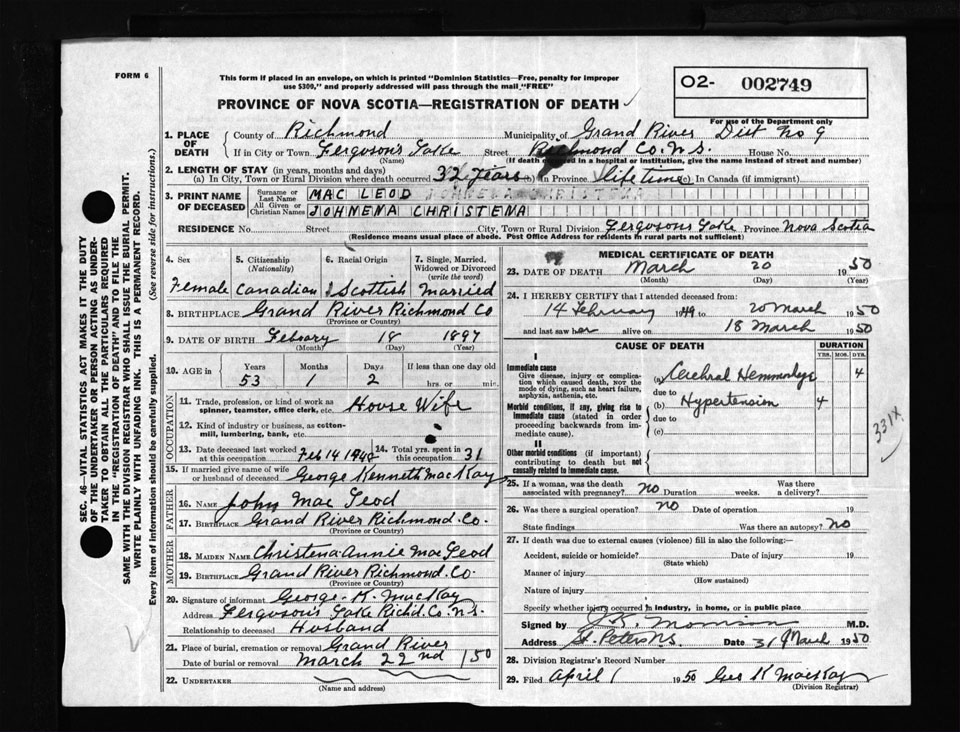 FORM 6
This form if placed in an envelope, on which is printed "Dominion Statistics—Free, penalty for improper
use $300," and properly addressed will pass through the mail "FREE"
O2- 002749
PROVINCE OF NOVA SCOTIA—REGISTRATION OF DEATH
For use of the Department only
1. PLACE OF DEATH County of Richmond Municipality of Grand River Dist No 9
If in City or Town Ferguson's Lake Street Richmond Co. N.S. House No.
(Name) (If death occurred in a hospital or institution, give the name instead of street and number)
2. LENGTH OF STAY (in years, months and days)
(a) In City, Town or Rural Division where death occurred 32 years (b) in Province life time (c) In Canada (if immigrant)
3. PRINT NAME OF DECEASED Surname or Last Name MAC LEOD JOHNENA CHRISTENA
All Given or Christian Names JOHNENA CHRISTENA
RESIDENCE No. Street City, Town or Rural Division Fergusons Lake Province Nova Scotia
(Residence means usual place of abode. Post Office Address for residents in rural parts not sufficient)
4. Sex Female
5. Citizenship (Nationality) Canadian
6. Racial Origin Scottish
7. Single, Married, Widowed or Divorced (write the word) Married
8. BIRTHPLACE Grand River Richmond Co
(Province or Country)
9. DATE OF BIRTH Febuary 18 1897
(Month) (Day) (Year)
10. AGE in Years 53 Months 1 Days 2 If less than one day old
hrs. or min.
OCCUPATION
11. Trade, profession, or kind of work as spinner, teamster, office clerk, etc. House Wife
12. Kind of industry or business, as cotton-mill, lumbering, bank, etc.
13. Date deceased last worked at this occupation Feb 14 1948
14. Total yrs. spent in this occupation 31
15. If married give name of wife or husband of deceased George Kenneth MacKay
FATHER
16. NAME John Mac Leod
17. BIRTHPLACE Grand River Richmond. Co.
(Province or Country)
MOTHER
18. MAIDEN NAME Christena Annie Mac Leod
19. BIRTHPLACE Grand River Richmond. Co.
(Province or Country)
20. Signature of informant George. K. MacKay
Address Ferguson's Lake Richd. Co. N.S.
Relationship to deceased Husband
21. Place of burial, cremation or removal Grand River
Date of burial or removal March 22nd 1950
22. UNDERTAKER
(Name and address)
MEDICAL CERTIFICATE OF DEATH
23. DATE OF DEATH March 20 1950
(Month) (Day) (Year)
24. I HEREBY CERTIFY that I attended deceased from:
14 February 1949 to 20 March 1950
and last saw her alive on 18 March 1950
CAUSE OF DEATH DURATION
YRS. MOS. DYS.
I
Immediate cause
Give disease, injury or complication which caused death, NOT the mode of dying, such as heart failure, asphyxia, asthenia, etc.
(a) Cerebral Hemmorhage 4
due to
Morbid conditions, if any, giving rise to immediate cause (stated in order proceeding backwards from immediate cause).
(b) Hypertension 4
due to
(c)
331X
II
Other morbid conditions (if important) contributing to death but not causally related to immediate cause.
25. If a woman, was the death associated with pregnancy? no Duration weeks. Was there a delivery?
26. Was there a surgical operation? no Date of operation 19
State findings Was there an autopsy? no
27. If death was due to external causes (violence) fill in also the following:—
Accident, suicide or homicide? Date of injury 19
(State which)
Manner of injury
(How sustained)
Nature of injury
Specify whether injury occurred in industry, in home, or in public place
Signed by J.R. Morrison M.D.
Address St. Peters N.S. Date 31 March 1950
28. Division Registrar's Record Number
29. Filed April 1 1950 Geo K MacKay
(Division Registrar)
SEC. 46—VITAL STATISTICS ACT MAKES IT THE DUTY
OF THE UNDERTAKER OR PERSON ACTING AS UNDERTAKER TO OBTAIN ALL THE PARTICULARS REQUIRED
IN THE "REGISTRATION OF DEATH" AND TO FILE THE
SAME WITH THE DIVISION REGISTRAR WHO SHALL ISSUE THE BURIAL PERMIT.
WRITE PLAINLY WITH UNFADING INK. THIS IS A PERMANENT RECORD.
Every item of information should be carefully supplied. (See reverse side for instructions.)